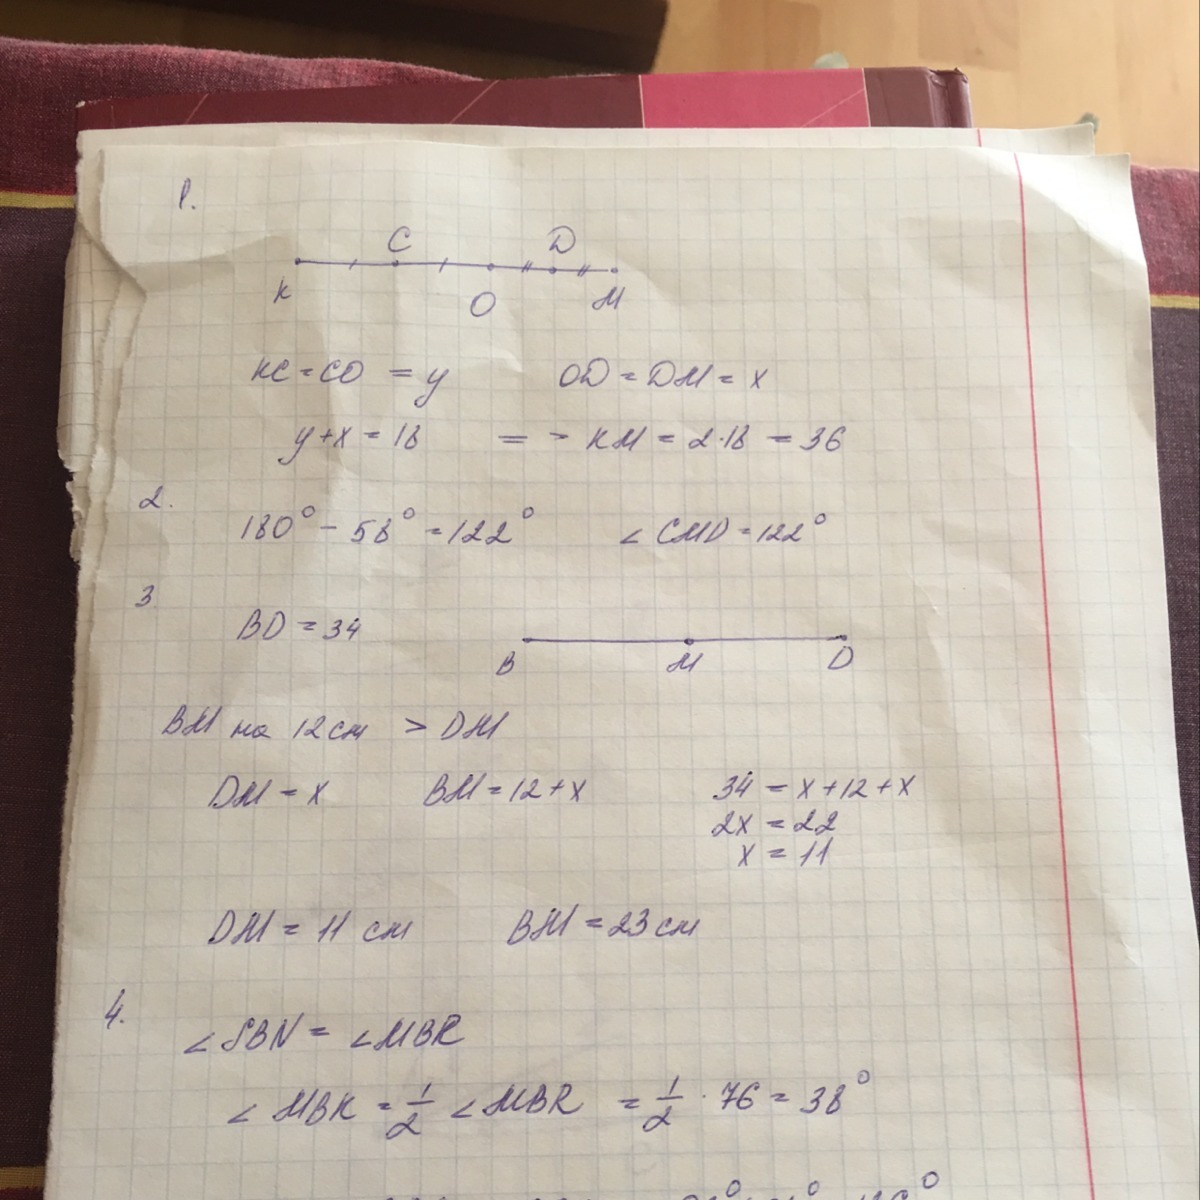 1.
C D
K O M
KC = CO = y OD = DM = x
y+x = 18 = > KM = 2·18 = 36
2.
180° - 58° = 122° ∠CMD = 122°
3
BD = 34
B M D
BM на 12 см > DM
DM = x BM = 12 + x 34 = x + 12 + x
2x = 22
x = 11
DM = 11 см BM = 23 см
4.
∠SBN = ∠MBR
∠MBK = 1/2 ∠MBR = 1/2 · 76 = 38°